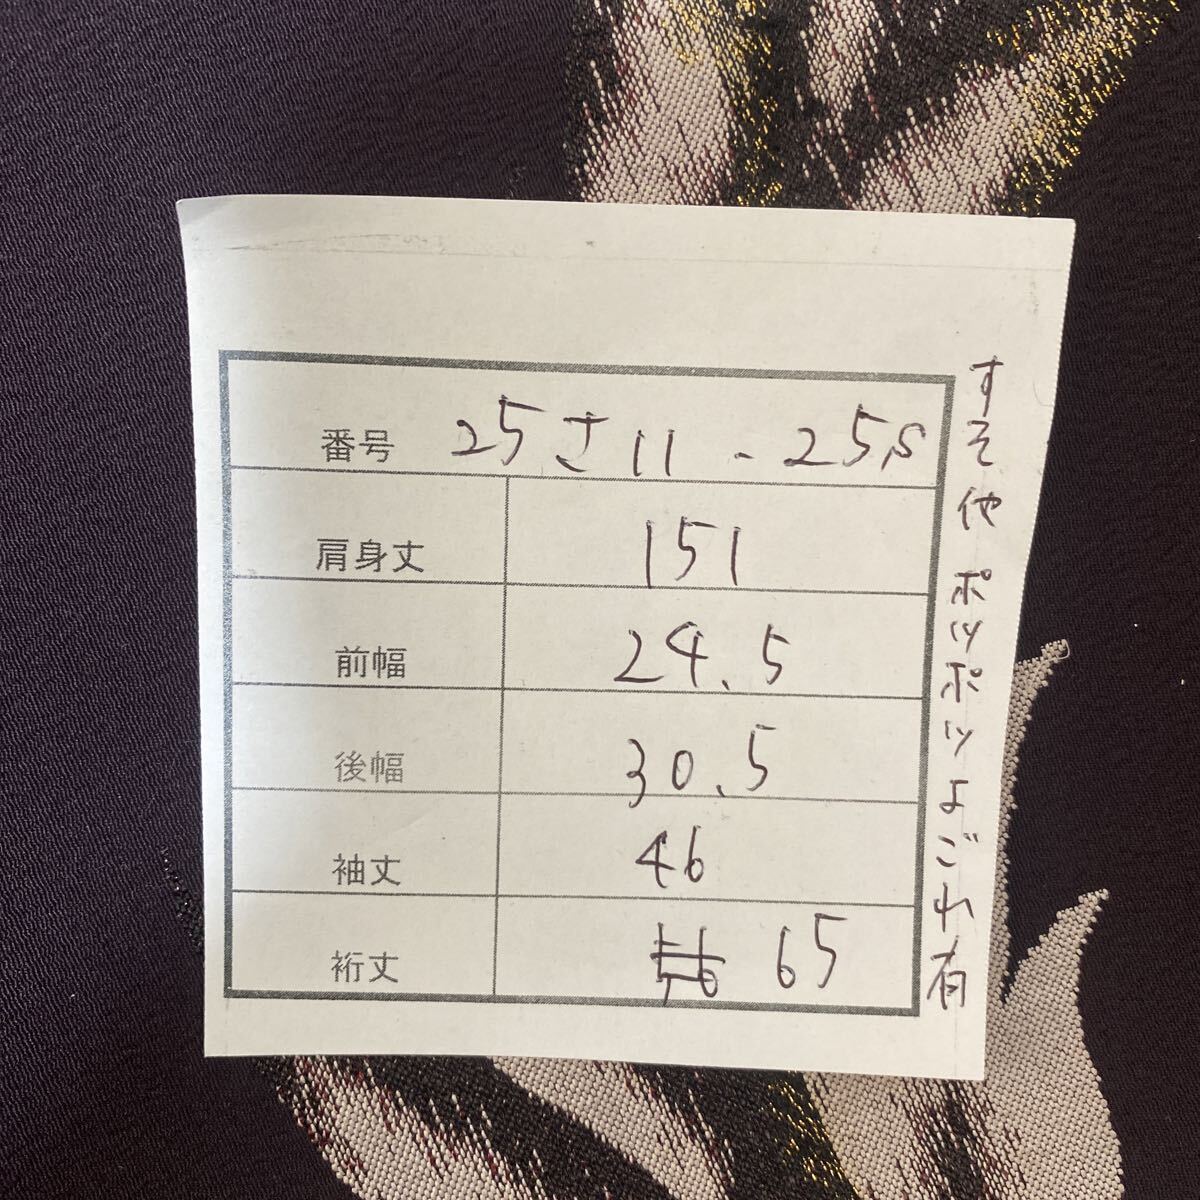 番号 25さ11-25,S
肩身丈 151
前幅 24.5
後幅 30.5
袖丈 46
裄丈 65
すそ他ポツポツよごれ有